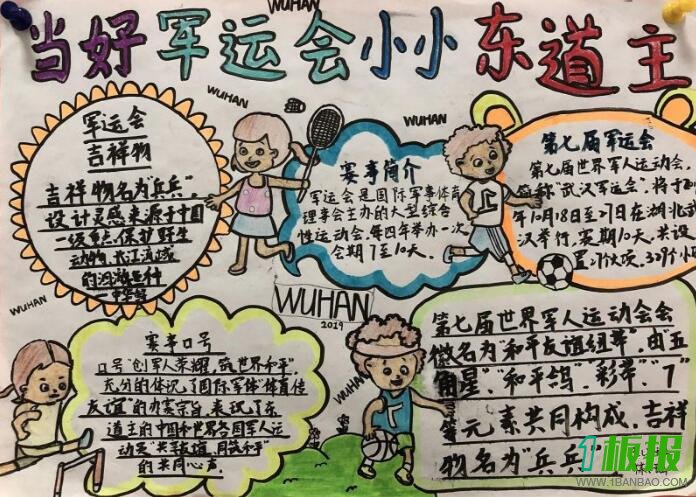 WUHAN
当好军运会小小东道主
WUHAN
WUHAN
军运会
吉祥物
吉祥物名为"兵兵",
设计灵感来源于中国
一级重点保护野生
动物,长江流域
的
一中华鲟
赛事简介
军运会是国际军事体育
理事会主办的大型综合
性运动会,每四年举办一次
会期7至10天.
第七届军运会
第七届世界军人运动会,
简称"武汉军运会",将于20
年10月18日至27日在湖北武
汉举行,赛期10天,共设
置27个大项、329个小
WUHAN
WUHAN
2019
赛事口号
口号"创军人荣耀,筑世界和平",
充分的体现了国际军体"体育传
友谊"的办赛宗旨,表现了东
道主的中国和世界各国军人运
动员"共享友谊,同筑和平"
的共同心声.
WUHAN
第七届世界军人运动会会
徽名为"和平友谊纽带",由"五
角星"、"和平鸽、彩带"、"7"
等元素共同构成,吉祥
物名为"兵兵"
1板报
WWW.1BANBAO.COM